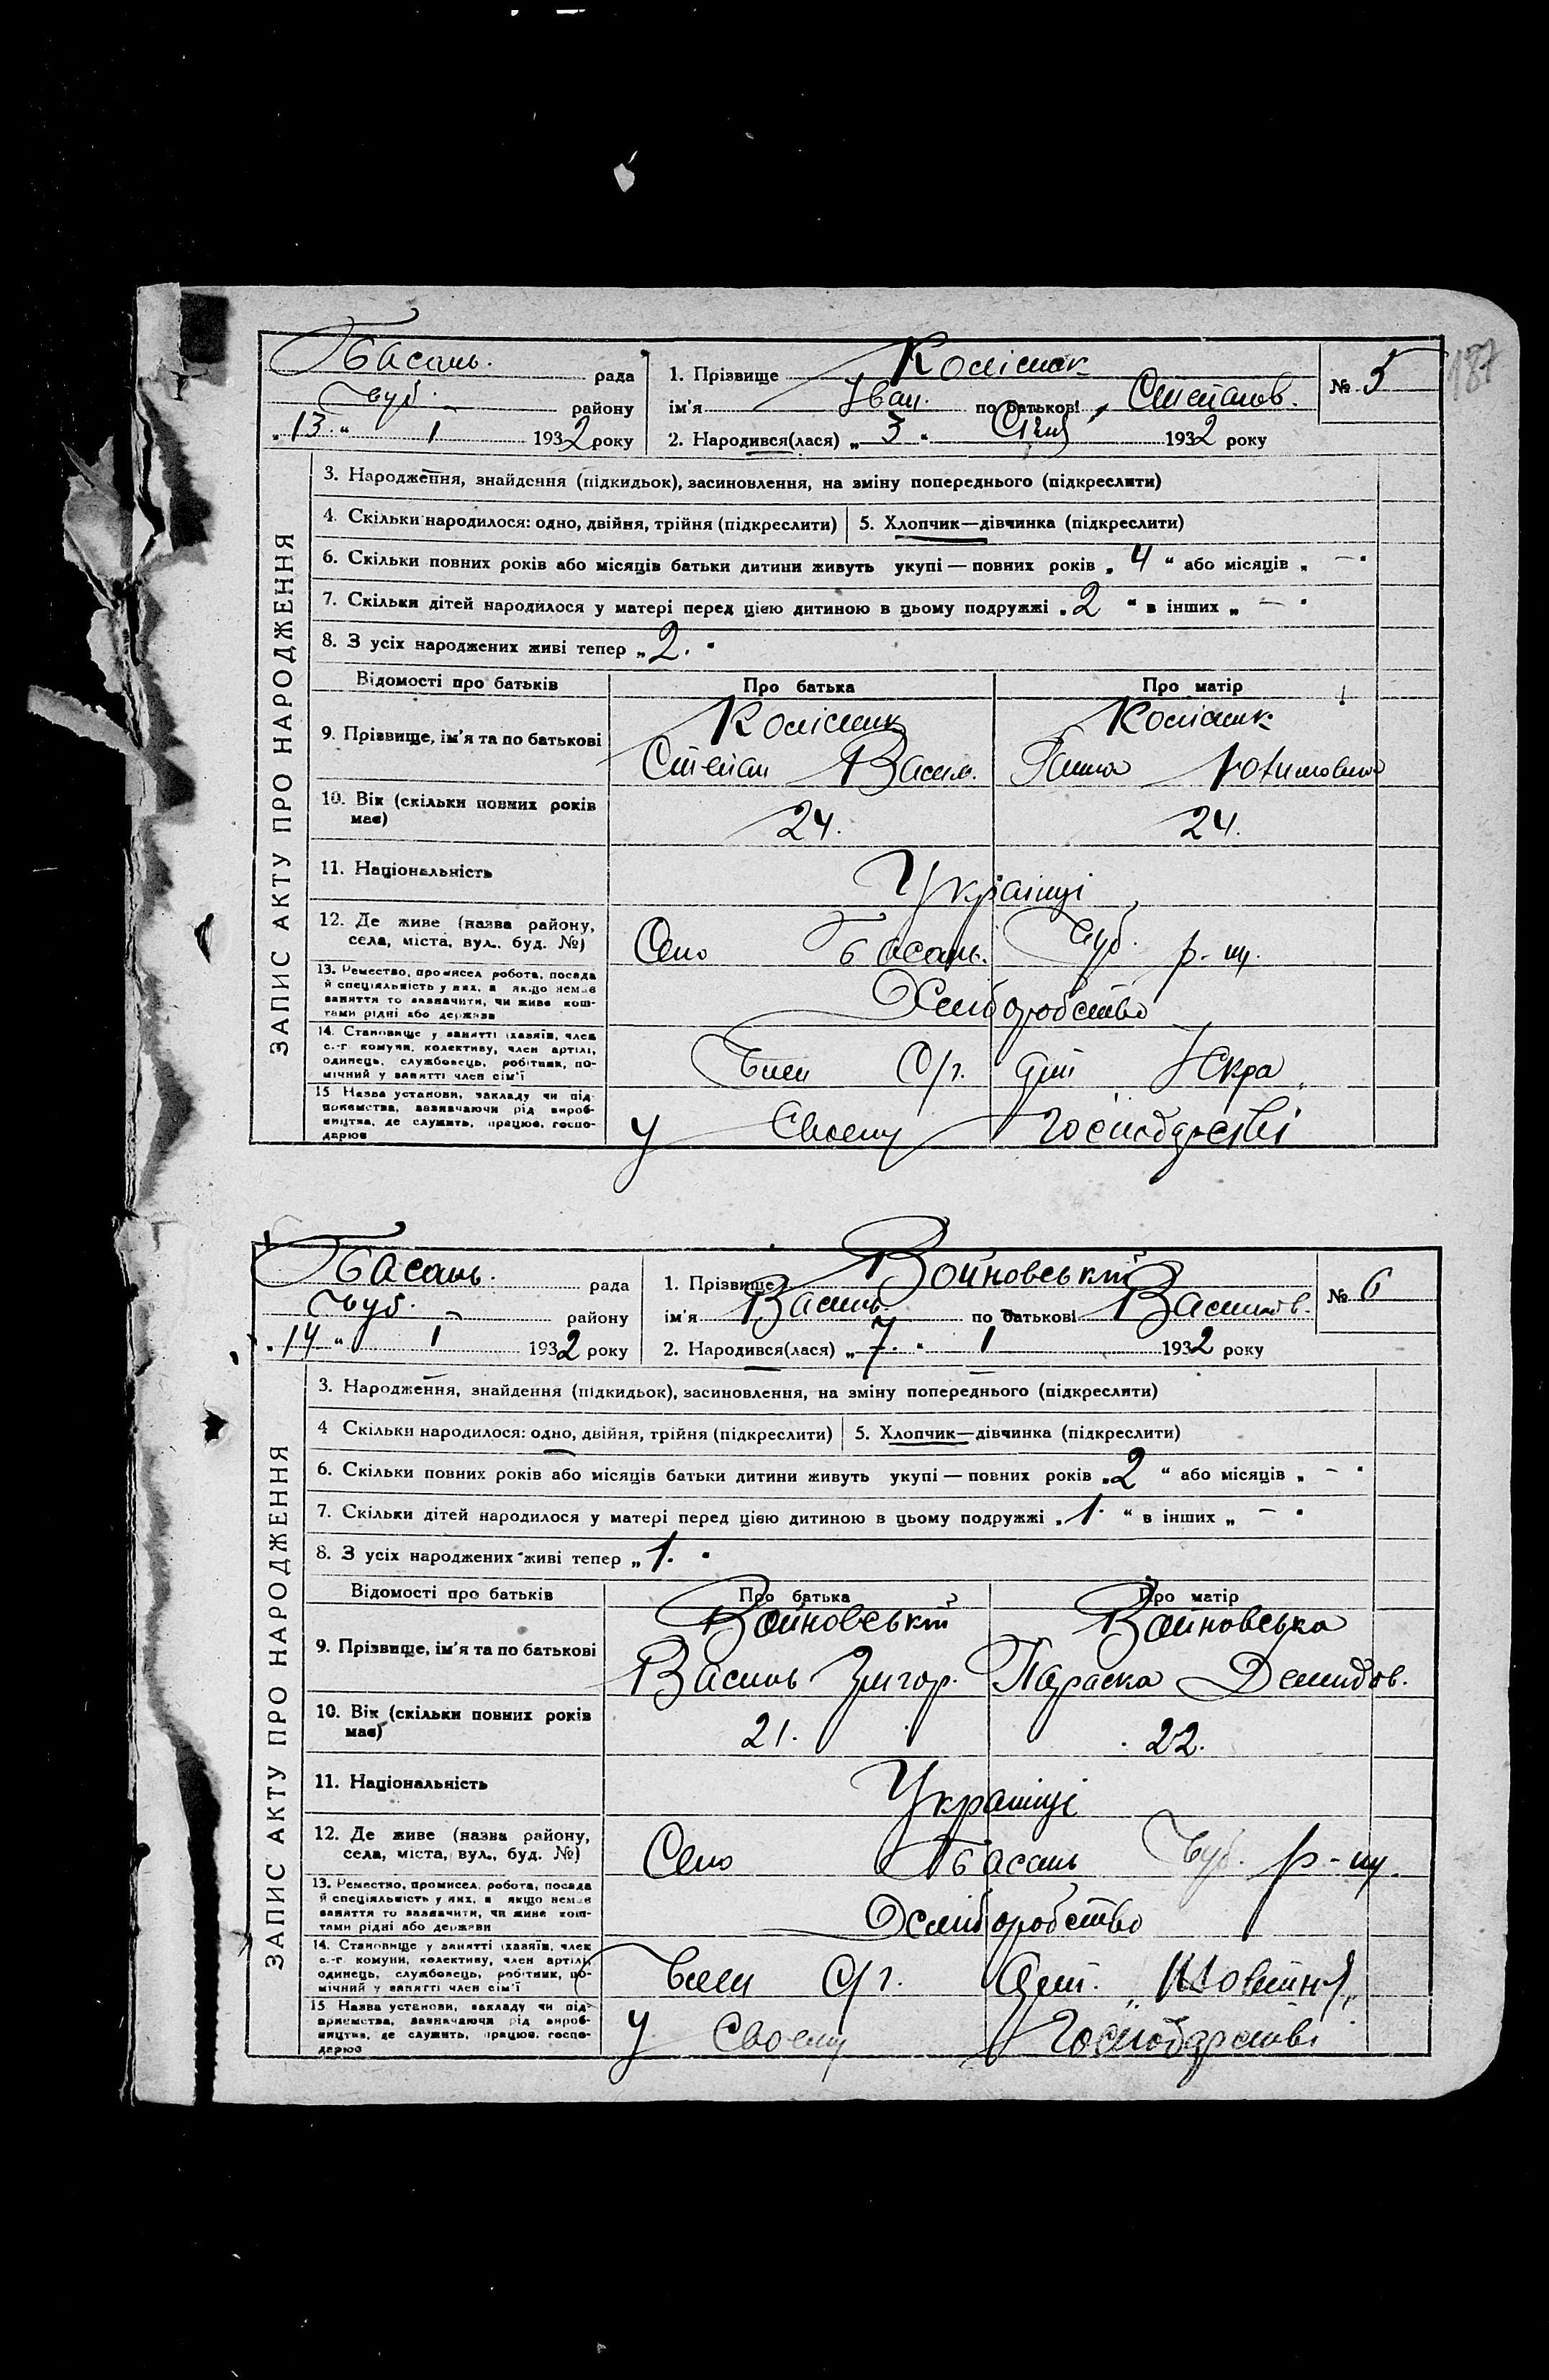 187
Басань. рада
Чуб. районy
„13.“ 1 1932 року
1. Прізвище Колісник
ім'я Іван. по батькові Степанов.
2. Народився(лася) „3“ Січня 1932 року
№ 5
ЗАПИС АКТУ ПРО НАРОДЖЕННЯ
3. Народження, знайдення (підкидьок), засиновлення, на зміну попереднього (підкреслити)
4. Скільки народилося: одно, двійня, трійня (підкреслити) 5. Хлопчик—дівчинка (підкреслити)
6. Скільки повних років або місяців батьки дитини живуть укупі — повних років „4“ або місяців „—“
7. Скільки дітей народилося у матері перед цією дитиною в цьому подружжі „2“ в інших „—“
8. З усіх народжених живі тепер „2.“
Відомості про батьків Про батька Про матір
9. Прізвище, ім'я та по батькові
Колісник Колісник
Степан Васил. Ганна
10. Вік (скільки повних років має) 24. 24.
11. Національність Українці
12. Де живе (назва району, села, міста, вул., буд. №)
Село Басань. Чуб. р-ну.
13. Ремество, промисел робота, посада й спеціяльність у них, а якщо немає заняття то зазначити, чи живе коштами рідні або держави
Хліборобство
14. Становище у занятті (хазяїн, член с.-г комуни, колективу, член артілі, одинець, службовець, робітник, помічний у занятті член сім'ї
Член С/г. арт Іскра
15 Назва установи, закладу чи підприємства, зазначаючи рід виробництва, де служить, працює, господарює
у Своему Господарстві
Басань. рада
Чуб. району
„14“ 1 1932 року
1. Прізвище Войновський
ім'я Василь. по батькові Васильов.
2. Народився(лася) „7.“ 1 1932 року
№ 6
ЗАПИС АКТУ ПРО НАРОДЖЕННЯ
3. Народження, знайдення (підкидьок), засиновлення, на зміну попереднього (підкреслити)
4 Скільки народилося: одно, двійня, трійня (підкреслити) 5. Хлопчик—дівчинка (підкреслити)
6. Скільки повних років або місяців батьки дитини живуть укупі — повних років „2“ або місяців „—“
7. Скільки дітей народилося у матері перед цією дитиною в цьому подружжі „1.“ в інших „—“
8. З усіх народжених живі тепер „1.“
Відомості про батьків Про батька Про матір
9. Прізвище, ім'я та по батькові
Войновський Войновська
Василь Григор. Параска Демидов.
10. Вік (скільки повних років має) 21. 22.
11. Національність Українці
12. Де живе (назва району, села, міста, вул., буд. №)
Село Басань Чуб. р-ну.
13. Ремество, промисел, робота, посада й спеціяльність у них, а якщо немає заняття то зазначити, чи живе коштами рідні або держави
Хліборобство
14. Становище у занятті (хазяїн, член с.-г комуни, колективу, член артілі, одинець, службовець, робітник, помічний у занятті член сім'ї
Член С/г. Арт.
15 Назва установи, закладу чи підприємства, зазначаючи рід виробництва, де служить, працює, господарює
у Своему Господарстві